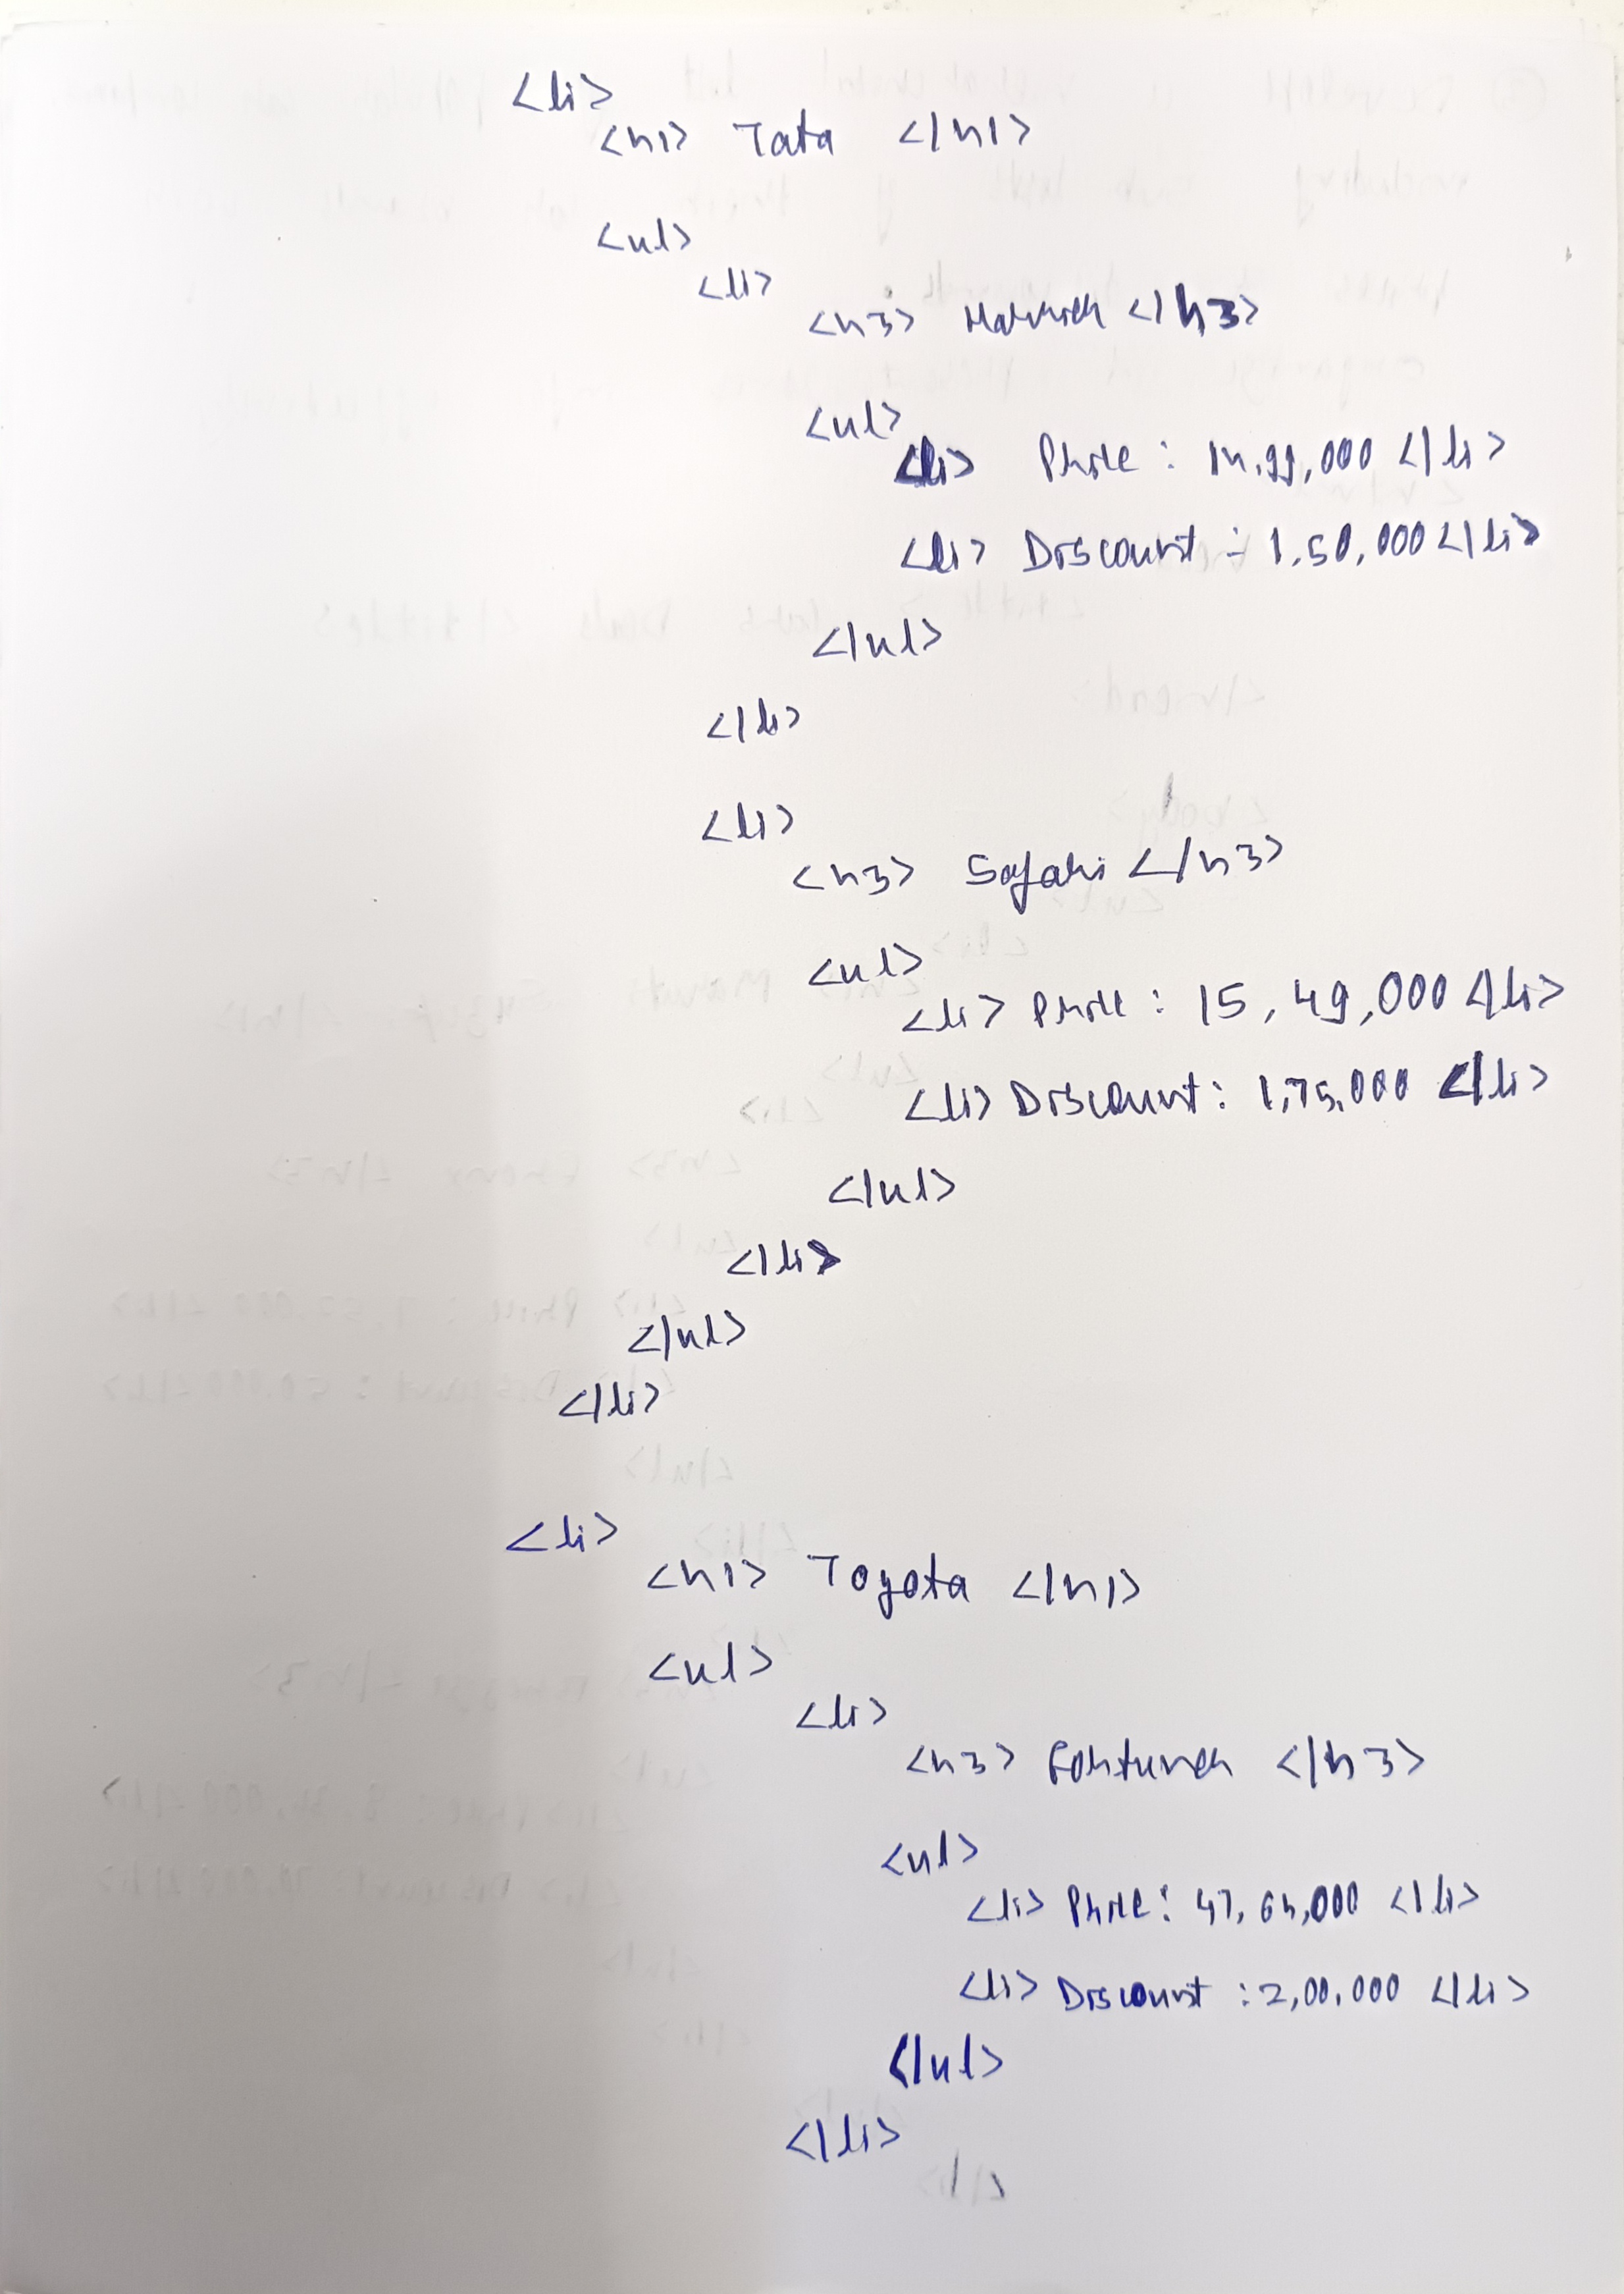 <li>
<h1> Tata </h1>
<ul>
<li>
<h3> Harrier </h3>
<ul>
<li> Price : 14,99,000 </li>
<li> Discount : 1,50,000 </li>
</ul>
</li>
<li>
<h3> Safari </h3>
<ul>
<li> Price : 15,49,000 </li>
<li> Discount : 1,75,000 </li>
</ul>
</li>
</ul>
</li>
<li>
<h1> Toyota </h1>
<ul>
<li>
<h3> Fortuner </h3>
<ul>
<li> Price : 47,64,000 </li>
<li> Discount : 2,00,000 </li>
</ul>
</li>